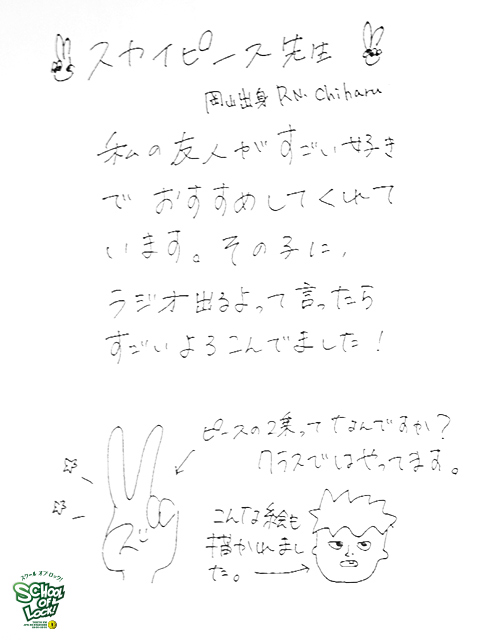 スカイピース先生
岡山出身 R.N. Chiharu
私の友人がすごい好き
で おすすめしてくれて
います。その子に、
ラジオ出るよって言ったら
すごいよろこんでました！
ピースの2乗ってなんですか？
クラスではやってます。
こんな絵も
描かれまし
た。
スクール オブ ロック!
SCHOOL OF LOCK!